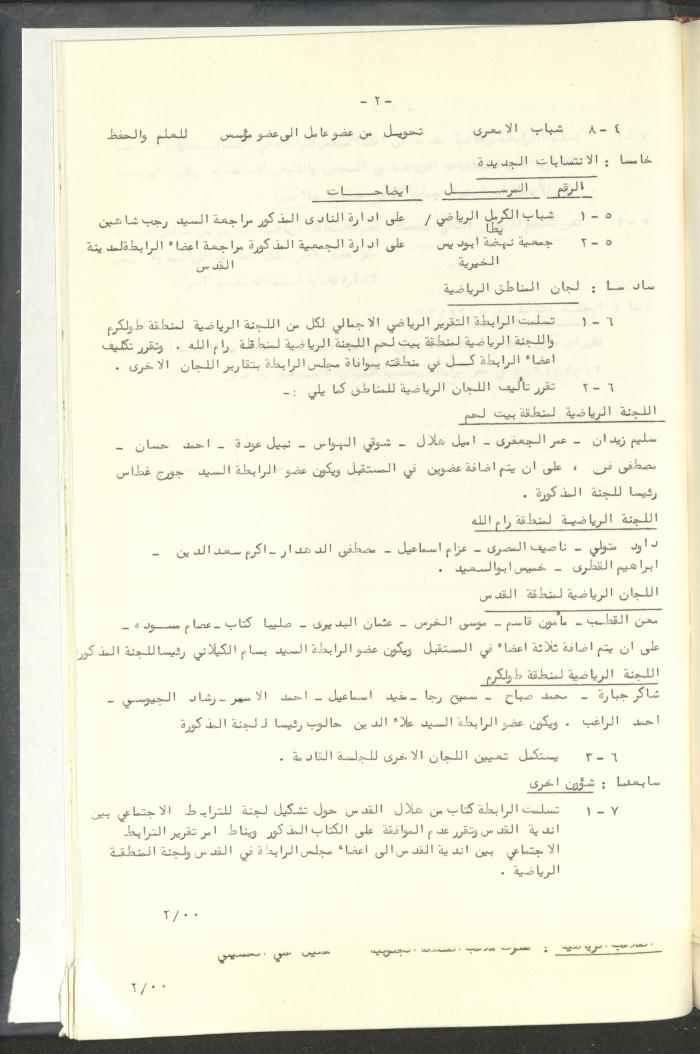 - ٢ -
٤ - ٨ شباب الامعرى تحويل من عضو عامل الى عضو مؤسس للعلم والحفظ
خامسا : الانتسابات الجديدة
الرقم المرســل ايضاحــات
٥ - ١ شباب الكرمل الرياضي / على ادارة النادى المذكور مراجعة السيد رجب شاهين
يطا
٥ - ٢ جمعية نهضة ابوديس على ادارة الجمعية المذكورة مراجعة اعضاء الرابطة لمدينة
الخيرية القدس
سادسا : لجان المناطق الرياضية
٦ - ١ تسلمت الرابطة التقرير الرياضي الاجمالي لكل من اللجنة الرياضية لمنطقة طولكرم
واللجنة الرياضية لمنطقة بيت لحم اللجنة الرياضية لمنطقة رام الله . وتقرر تكليف
اعضاء الرابطة كــل في منطقته بموافاة مجلس الرابطة بتقارير اللجان الاخرى .
٦ - ٢ تقرر تأليف اللجان الرياضية للمناطق كما يلي :-
اللجنة الرياضية لمنطقة بيت لحم
سليم زيدان - عمر الجعفرى - اميل هلال - شوقي الهواس - نبيل عودة - احمد حسان -
مصطفى فن ، على ان يتم اضافة عضوين في المستقبل ويكون عضو الرابطة السيد جورج غطاس
رئيسا للجنة المذكورة .
اللجنة الرياضية لمنطقة رام الله
داود متولي - ناصيف المصرى - عزام اسماعيل - مصطفى الدهدار - اكرم سعد الدين -
ابراهيم القطرى - خميس ابوالسعيد .
اللجان الرياضية لمنطقة القدس
معن القطب - مأمون قاسم - موسى الخرس - عثمان البديرى - صليبا كتاب - عصام مسوده -
على ان يتم اضافة ثلاثة اعضاء في المستقبل ويكون عضو الرابطة السيد بسام الكيلاني رئيسا للجنة المذكور
اللجنة الرياضية لمنطقة طولكرم
شاكر جبارة - محمد صباح - سميح رجا - مفيد اسماعيل - احمد الاسمر - رشاد الجيوسي -
احمد الراغب . ويكون عضو الرابطة السيد علاء الدين حالوب رئيسا للجنة المذكورة
٦ - ٣ يستكمل تعيين اللجان الاخرى للجلسة القادمة .
سابعا : شؤون اخرى
٧ - ١ تسلمت الرابطة كتاب من هلال القدس حول تشكيل لجنة للترابط الاجتماعي بين
اندية القدس وتقرر عدم الموافقة على الكتاب المذكور ويناط امر تقرير الترابط
الاجتماعي بين اندية القدس الى اعضاء مجلس الرابطة في القدس ولجنة المنطقة
الرياضية .
٢/٠٠
٢/٠٠